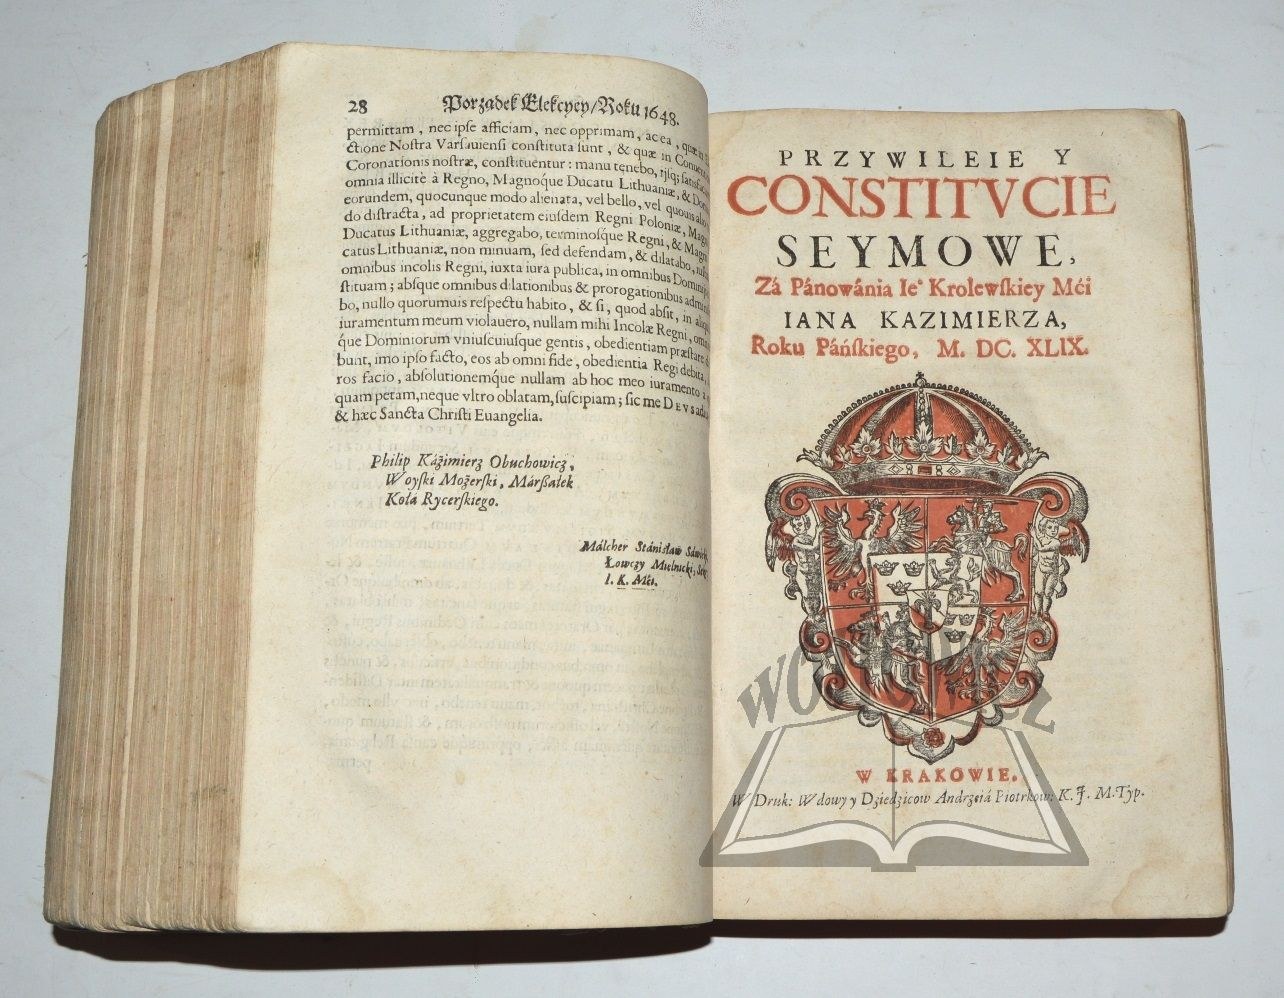 28 Porządek Elekcyey/Roku 1648.
permittam, nec ipse afficiam, nec opprimam, ac ea, quæ in
ctione Nostra Varsauiensi constituta sunt, & quæ in Conuent
Coronationis nostræ, constituentur: manu tenebo, ijsq; satisfac
omnia illicitè à Regno, Magnoque Ducatu Lithuaniæ, & Do
eorundem, quocunque modo alienata, vel bello, vel quouis alio
do distracta, ad proprietatem eiusdem Regni Poloniæ, Magn
Ducatus Lithuaniæ, aggregabo, terminosque Regni, & Magn
catus Lithuaniæ, non minuam, sed defendam, & dilatabo, ius
omnibus incolis Regni, iuxta iura publica, in omnibus Dominijs
stituam; absque omnibus dilationibus & prorogationibus admin
bo, nullo quorumuis respectu habito, & si, quod absit, in aliqu
iuramentum meum violauero, nullam mihi Incolæ Regni, omn
que Dominiorum vniuscuiusque gentis, obedientiam præstare
bunt, imo ipso facto, eos ab omni fide, obedientia Regi debita,
ros facio, absolutionemque nullam ab hoc meo iuramento a
quam petam, neque vltro oblatam, suscipiam; sic me DEVS adiu
& hæc Sancta Christi Euangelia.
Philip Káźimierz Obuchowicz,
Woyski Mozerski, Márßałek
Kołá Rycerskiego.
Málcher Stánisław Sáwick
Łowczy Mielnicki, Sekr
I. K. Mći.
PRZYWILEIE Y
CONSTITVCIE
SEYMOWE,
Zá Pánowánia Ieº Krolewskiey Mći
IANA KAZIMIERZA,
Roku Páńskiego, M. DC. XLIX.
W KRAKOWIE.
W Druk: Wdowy y Dziedzicow Andrzeiá Piotrkow: K. J. M. Typ.